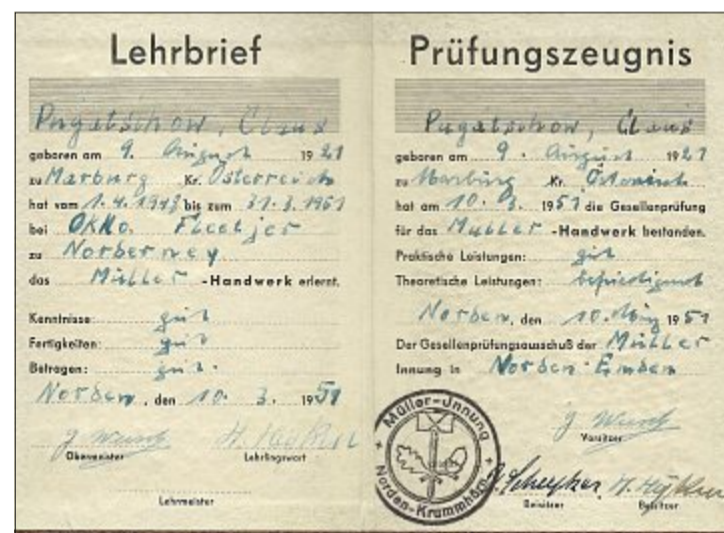 Lehrbrief
Pugatschow, Claus
geboren am 9. August 1921
zu Marburg Kr. Österreich
hat vom 1.4.1948 bis zum 31.3.1951
bei Okko Fleetjer
zu Norderney
das Müller -Handwerk erlernt.
Kenntnisse: gut
Fertigkeiten: gut
Betragen: gut.
Norden, den 10. 3. 1951
Obermeister Lehrlingswart
Lehrmeister
Prüfungszeugnis
Pugatschow, Claus
geboren am 9. August 1921
zu Marburg Kr. Österreich
hat am 10. 3. 1951 die Gesellenprüfung
für das Müller -Handwerk bestanden.
Praktische Leistungen: gut
Theoretische Leistungen: befriedigend
Norden, den 10. März 1951
Der Gesellenprüfungsausschuß der Müller
Innung in Norden-Emden
Vorsitzer
Beisitzer Beisitzer
Müller-Innung
Norden-Krummhörn